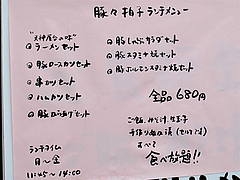 豚々拍子 ランチメニュー
"天神屋の味"
◎ラーメンセット
◎豚ロースカツセット
◎串カツセット
◎ハムカツセット
◎豚からあげセット
◎豚しゃぶサラダセット
◎豚スタミナ焼セット
◎豚ホルモンスタミナ焼セット
全品 680円
ご飯、みそ汁、生玉子
手作り粕の漬
すべて
食べ放題!!
ランチタイム
月〜金
11:45〜14:00